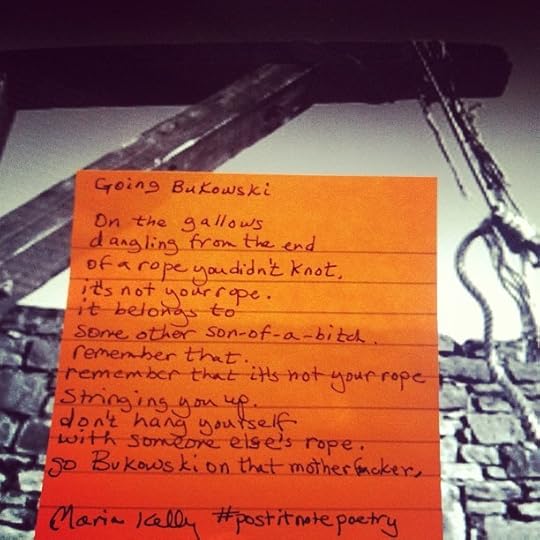 Going Bukowski
On the gallows
dangling from the end
of a rope you didn't knot.
it's not your rope.
it belongs to
some other son-of-a-bitch.
remember that.
remember that it's not your rope
stringing you up.
don't hang yourself
with someone else's rope.
go Bukowski on that motherfucker,
Maria Kelly #postitnotepoetry